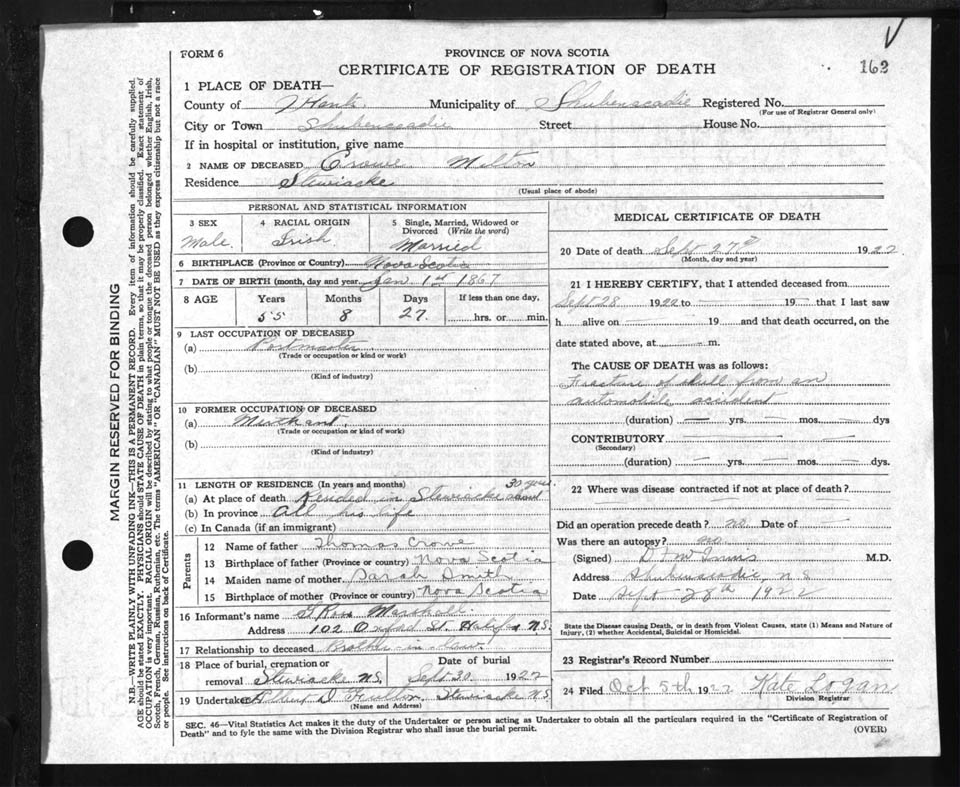 FORM 6
PROVINCE OF NOVA SCOTIA
CERTIFICATE OF REGISTRATION OF DEATH
162
1 PLACE OF DEATH—
County of Hants Municipality of Shubenacadie Registered No.
(For use of Registrar General only)
City or Town Shubenacadie Street House No.
If in hospital or institution, give name
2 NAME OF DECEASED Crowe Milton
Residence Stewiacke
(Usual place of abode)
PERSONAL AND STATISTICAL INFORMATION
3 SEX 4 RACIAL ORIGIN 5 Single, Married, Widowed or
Divorced (Write the word)
Male. Irish. Married
6 BIRTHPLACE (Province or Country) Nova Scotia
7 DATE OF BIRTH (month, day and year Jan 1st 1867
8 AGE Years Months Days If less than one day,
55 8 27. hrs. or min.
9 LAST OCCUPATION OF DECEASED
(a) Postmaster
(Trade or occupation or kind or work)
(b)
(Kind of industry)
10 FORMER OCCUPATION OF DECEASED
(a) Merchant.
(Trade or occupation or kind of work)
(b)
(Kind of industry)
11 LENGTH OF RESIDENCE (In years and months) 30 years
(a) At place of death Resided in Stewiacke about
(b) In province All his life
(c) In Canada (if an immigrant)
Parents
12 Name of father Thomas Crowe
13 Birthplace of father (Province or country) Nova Scotia
14 Maiden name of mother Sarah Smith
15 Birthplace of mother (Province or Country) Nova Scotia
16 Informant's name Ross Marshall
Address 102 Oxford St. Halifax N.S.
17 Relationship to deceased Brother-in-law.
18 Place of burial, cremation or Date of burial
removal Stewiacke N.S. Sept 30 1922
19 Undertaker D Fulton Stewiacke N.S.
(Name and Address)
MEDICAL CERTIFICATE OF DEATH
20 Date of death Sept 27th 1922
(Month, day and year)
21 I HEREBY CERTIFY, that I attended deceased from
Sept 28 1922 to — 19 — that I last saw
h alive on — 19 — and that death occurred, on the
date stated above, at — m.
The CAUSE OF DEATH was as follows:
Fracture of skull from an
automobile accident
(duration) — yrs. — mos. — dys
CONTRIBUTORY — —
(Secondary)
(duration) — yrs. — mos. — dys.
22 Where was disease contracted if not at place of death?
—
Did an operation precede death? no Date of —
Was there an autopsy? no
(Signed) D F McInnis M.D.
Address Shubenacadie, N.S
Date Sept 28th 1922
State the Disease causing Death, or in death from Violent Causes, state (1) Means and Nature of
Injury, (2) whether Accidental, Suicidal or Homicidal.
23 Registrar's Record Number
24 Filed Oct 5th 1922 Kate Logan
Division Registrar
SEC. 46—Vital Statistics Act makes it the duty of the Undertaker or person acting as Undertaker to obtain all the particulars required in the "Certificate of Registration of
Death" and to fyle the same with the Division Registrar who shall issue the burial permit. (OVER)
MARGIN RESERVED FOR BINDING
N.B.—WRITE PLAINLY WITH UNFADING INK—THIS IS A PERMANENT RECORD. Every item of information should be carefully supplied.
AGE should be stated EXACTLY. PHYSICIANS should STATE CAUSE OF DEATH in plain terms, so that it may be properly classified. Exact statement of
OCCUPATION is very important. RACIAL ORIGIN will be described by stating to what people or tongue the deceased person belonged whether English, Irish,
Scotch, French, German, Russian, Ruthenian, etc. The terms "AMERICAN" OR "CANADIAN" MUST NOT BE USED as they express citizenship but not a race
or people. See instructions on back of Certificate.